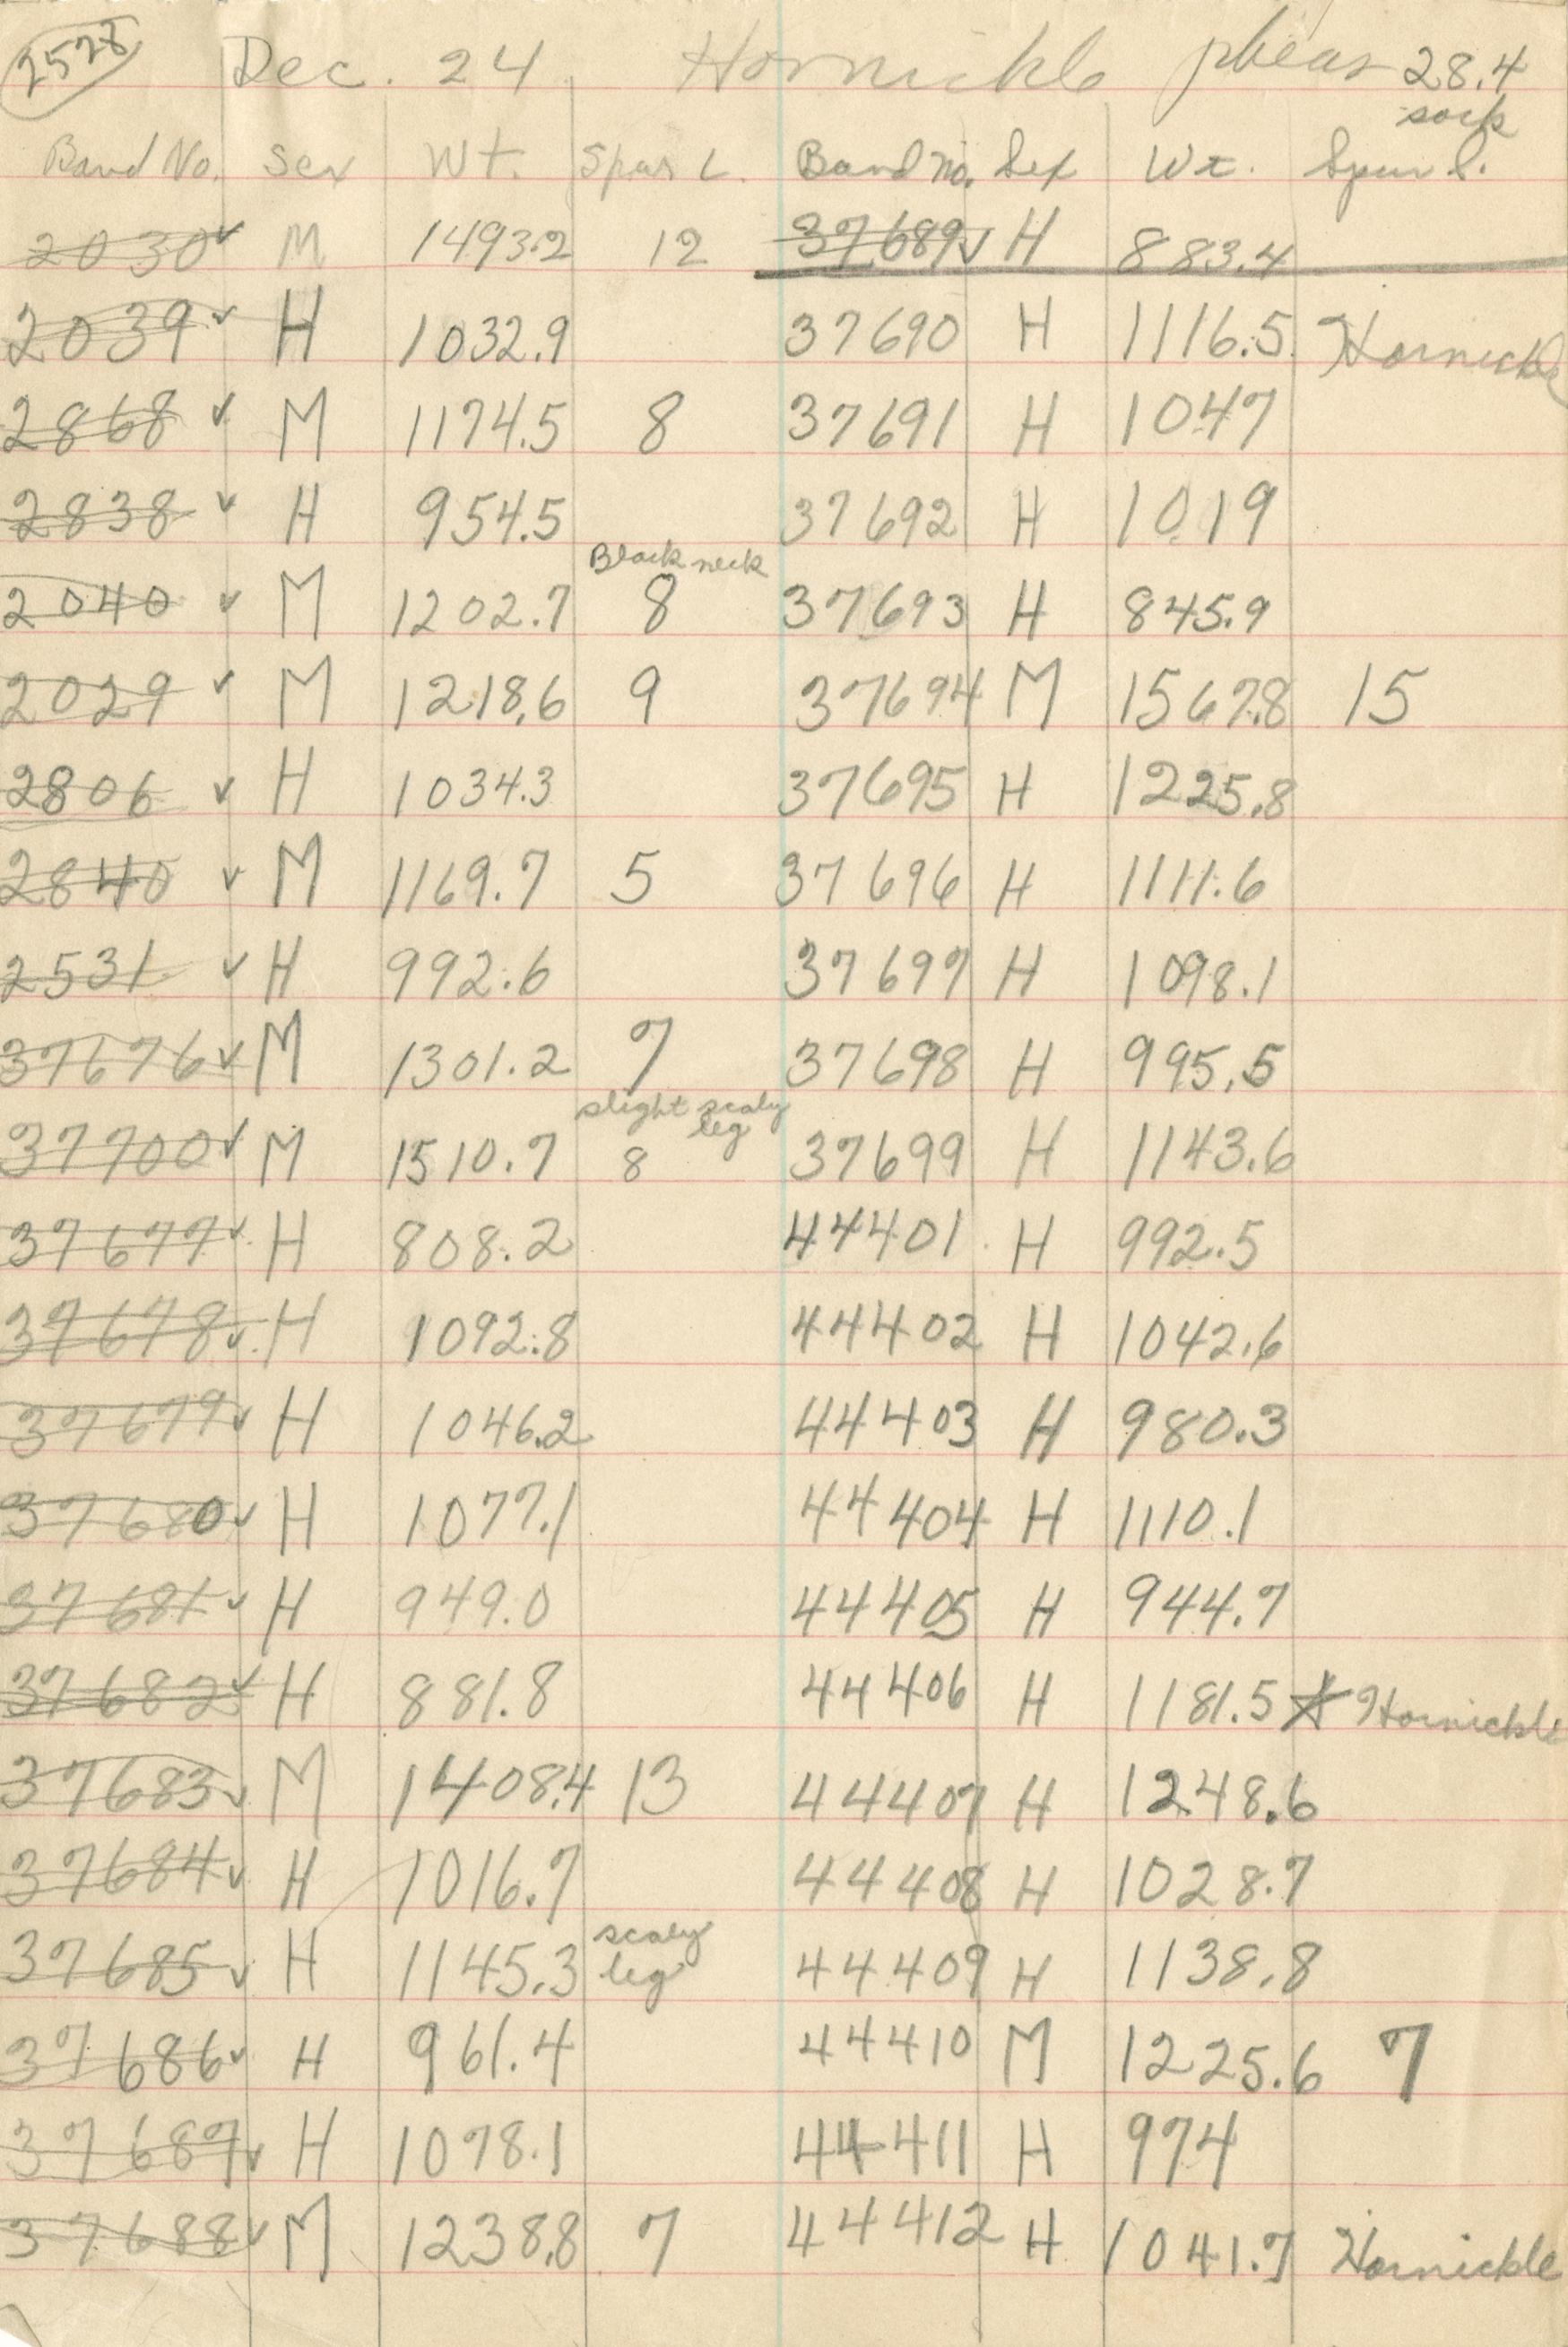 2528 Dec. 24 Hornickle pheas 28.4
sock
Band No. Sex Wt. Spur L. Band no. Sex Wt. Spur L.
2030 ✓ M 1493.2 12 37689 ✓ H 883.4
2039 ✓ H 1032.9 37690 H 1116.5 Hornickle
2868 ✓ M 1174.5 8 37691 H 1047
2838 ✓ H 954.5 37692 H 1019
Black neck
2040 ✓ M 1202.7 8 37693 H 845.9
2029 ✓ M 1218.6 9 37694 M 1567.8 15
2806 ✓ H 1034.3 37695 H 1225.8
2840 ✓ M 1169.7 5 37696 H 1111.6
2531 ✓ H 992.6 37697 H 1098.1
37676 ✓ M 1301.2 7 37698 H 995.5
slight scaly leg
37700 ✓ M 1510.7 8 37699 H 1143.6
37677 ✓ H 808.2 44401 H 992.5
37678 ✓ H 1092.8 44402 H 1042.6
37679 ✓ H 1046.2 44403 H 980.3
37680 ✓ H 1077.1 44404 H 1110.1
37681 ✓ H 949.0 44405 H 944.7
37682 ✓ H 881.8 44406 H 1181.5 * Hornickle
37683 ✓ M 1408.4 13 44407 H 1248.6
37684 ✓ H 1016.7 44408 H 1028.7
37685 ✓ H 1145.3 scaly leg 44409 H 1138.8
37686 ✓ H 961.4 44410 M 1225.6 7
37687 ✓ H 1078.1 44411 H 974
37688 ✓ M 1238.8 7 44412 H 1041.7 Hornickle